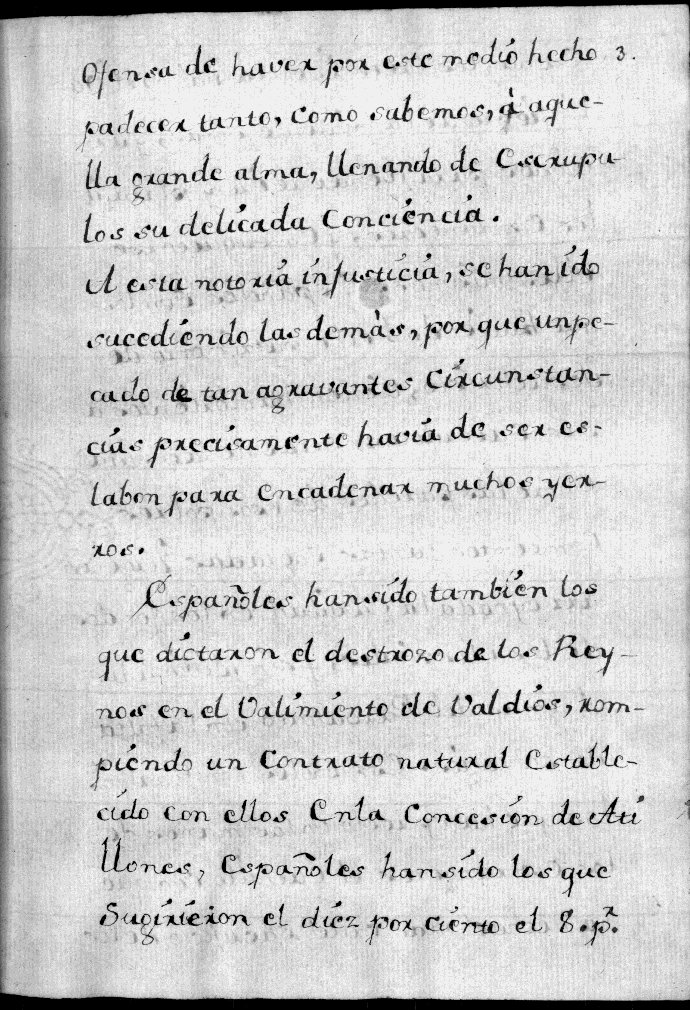 Ofensa de haver por este medio hecho 3.
padecer tanto, como sabemos, à aque-
lla grande alma, llenando de Escrupu
los su delicada Conciencia.
A esta notoria injusticia, se han ido
sucediendo las demàs, por que un pe-
cado de tan agravantes Circunstan-
cias precisamente havia de ser es-
labon para encadenar muchos yer-
ros.
Españoles han sido tambien los
que dictaron el destrozo de los Rey-
nos en el Valimiento de Valdios, rom-
piendo un Contrato natural Estable-
cido con ellos En la Concesion de Mi
llones, Españoles han sido los que
Sugirieron el diez por ciento el 8. pr.